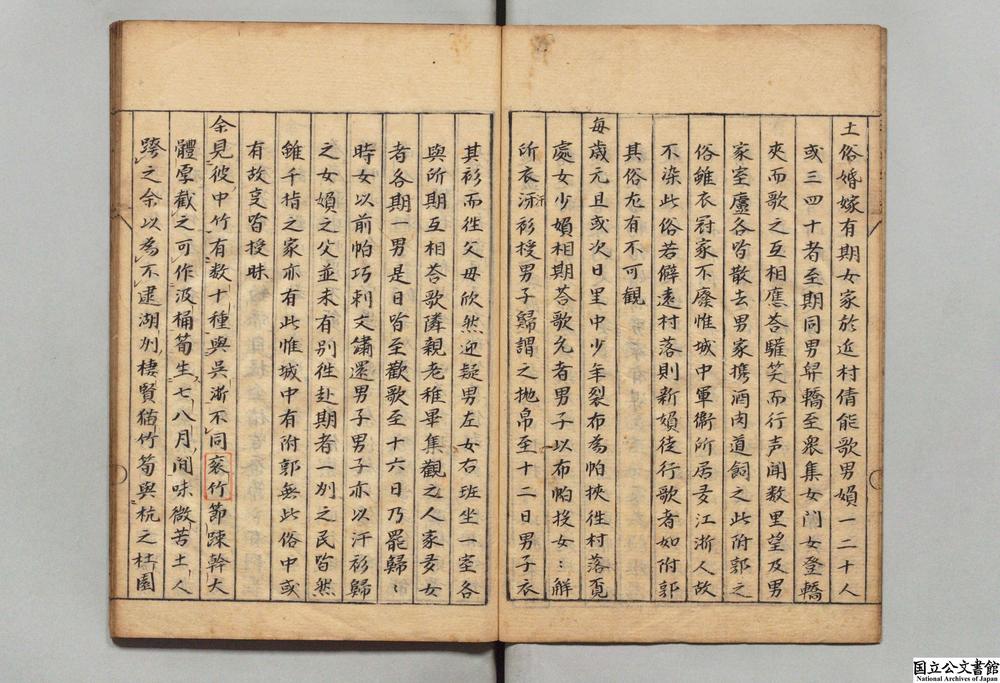 土俗婚嫁有期女家於近村倩能歌男婦一二十人
或三四十者至期同男舁轎至衆集女門女登轎
夾而歌之互相應荅驩笑而行声聞数里望及男
家室廬各皆散去男家携酒肉道飼之此附郭之
俗雖衣冠家不廢惟城中軍衛所居多江浙人故
不染此俗若僻遠村落則新婦徒行歌者如附郭
其俗尤有不可觀
每歳元旦或次日里中少年裂布為帕挾徃村落覔
處女少婦相期荅歌允者男子以布帕投女〻解
所衣汗衫授男子歸謂之抛帛至十二日男子衣
其衫而徃父母欣然迎疑男左女右班坐一室各
與所期互相荅歌隣親老稚畢集觀之人家多女
者各期一男是日皆至歡歌至十六日乃罷歸〻
時女以前帕巧刺文繡還男子男子亦以汗衫歸
之女婦之父並未有別徃赴期者一州之民皆然
雖千指之家亦有此惟城中有附郭無此俗中或
有故享皆授昧
余見彼中竹有数十種與吳浙不同袤竹節踈幹大
體厚截之可作汲桶筍生七八月間味微苦土人
誇之余以為不逮湖州棲賢猫竹筍與杭之杜園
国立公文書館
National Archives of Japan